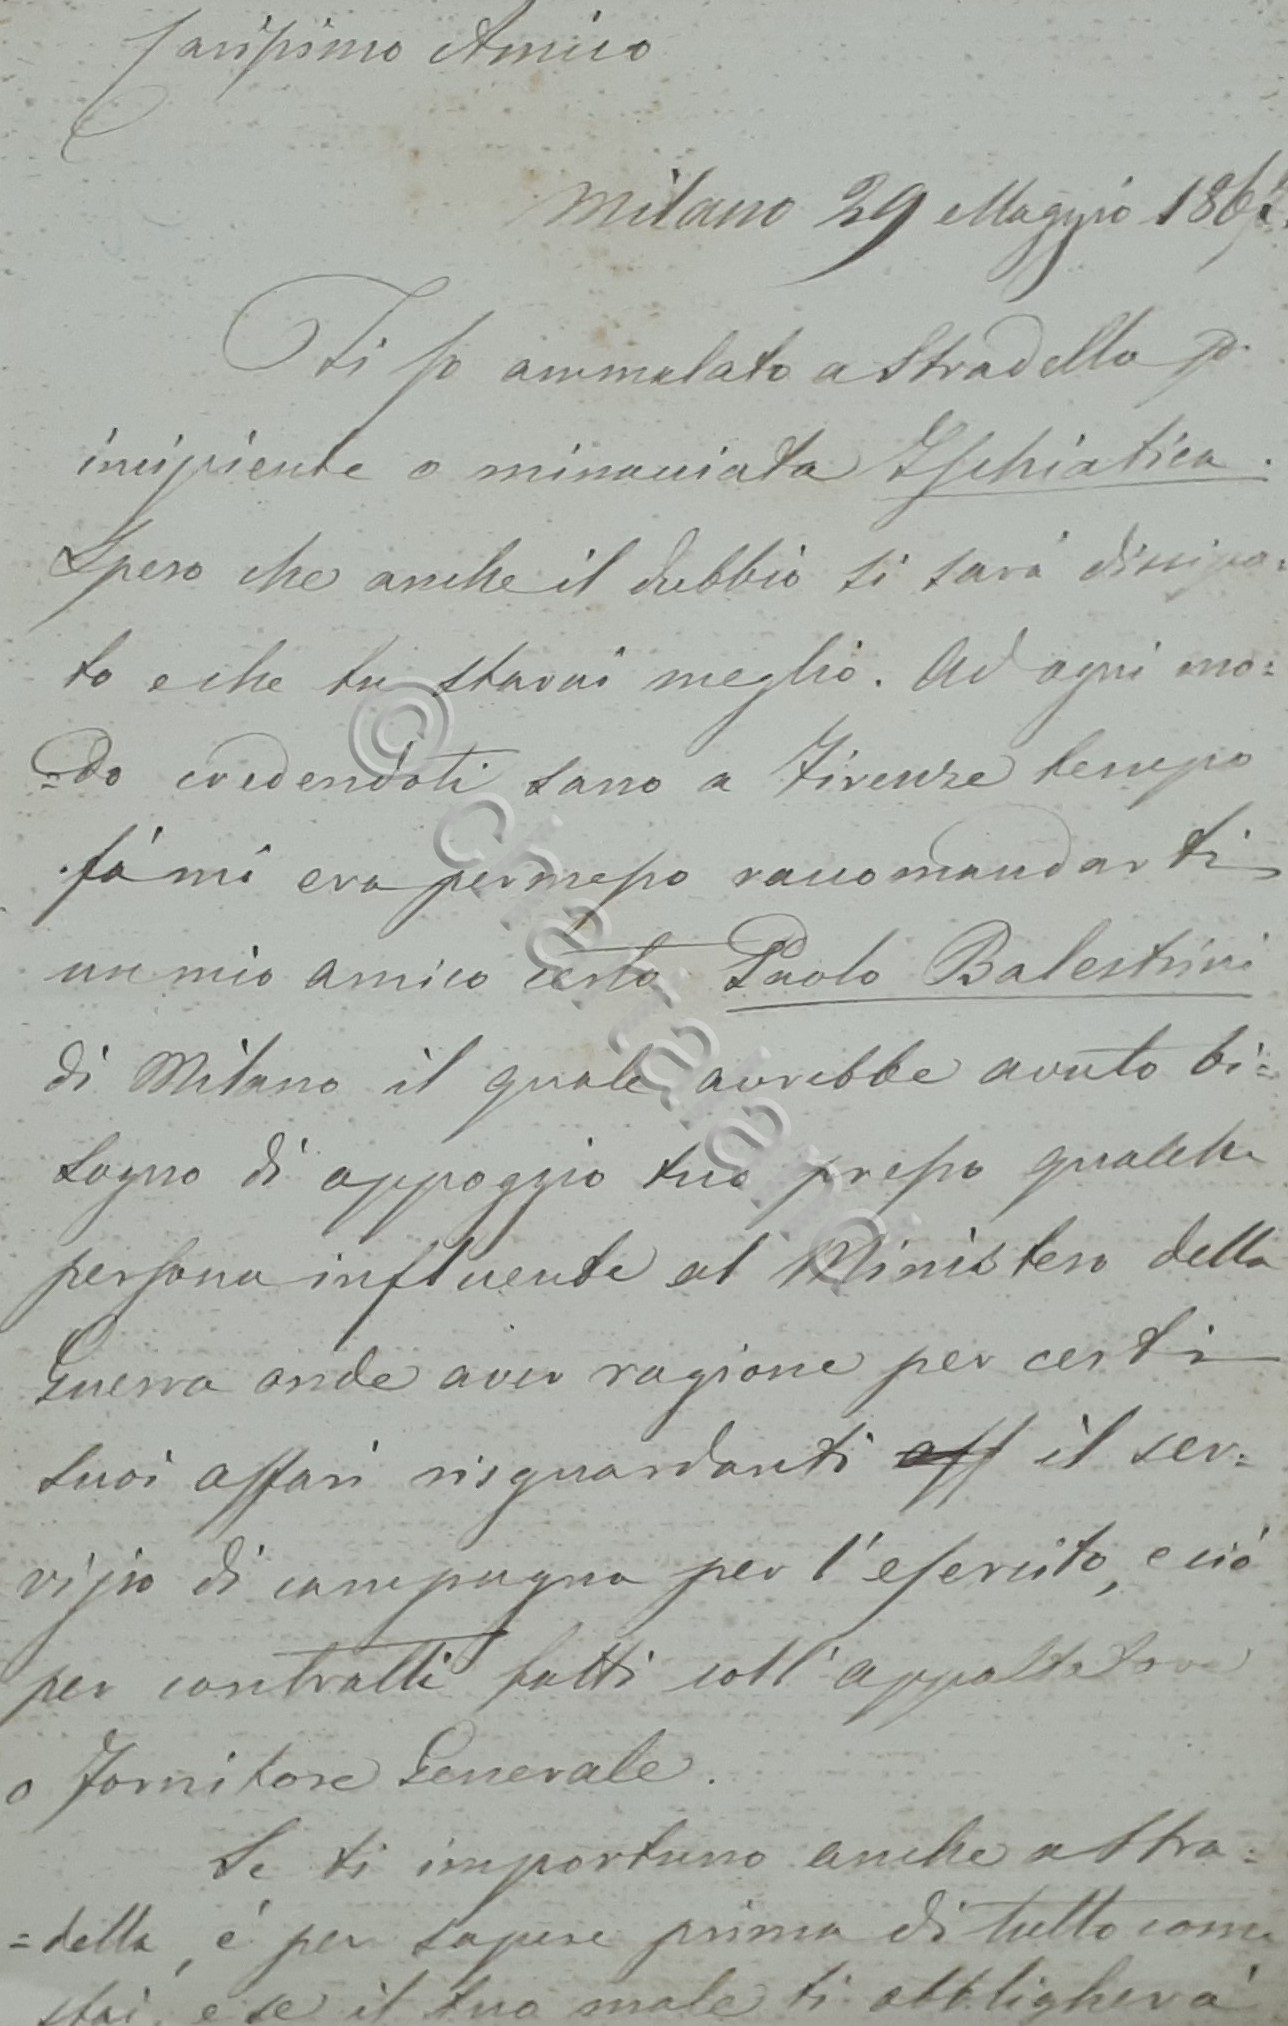 Carissimo Amico
Milano 29 Maggio 186
Ti so ammalato a Stradella p
incipiente o minacciata Ischiatica.
Spero che anche il dubbio si sarà dissipa=
to e che tu starai meglio. Ad ogni mo=
=do credendoti sano a Firenze tempo
fà mi era permesso raccomandarti
un mio amico certo Paolo Balestrini
di Milano il quale avrebbe avuto bi=
sogno di appoggio tuo presso qualche
persona influente al Ministero della
Guerra onde aver ragione per certi
suoi affari risguardanti aff il ser=
vizio di campagna per l'esercito, e ciò
per contratti fatti coll'appaltatore
o Fornitore Generale.
Se ti importuno anche a Stra=
=della, è per sapere prima di tutto come
stai, e se il tuo male ti obbligherà
© chartaland